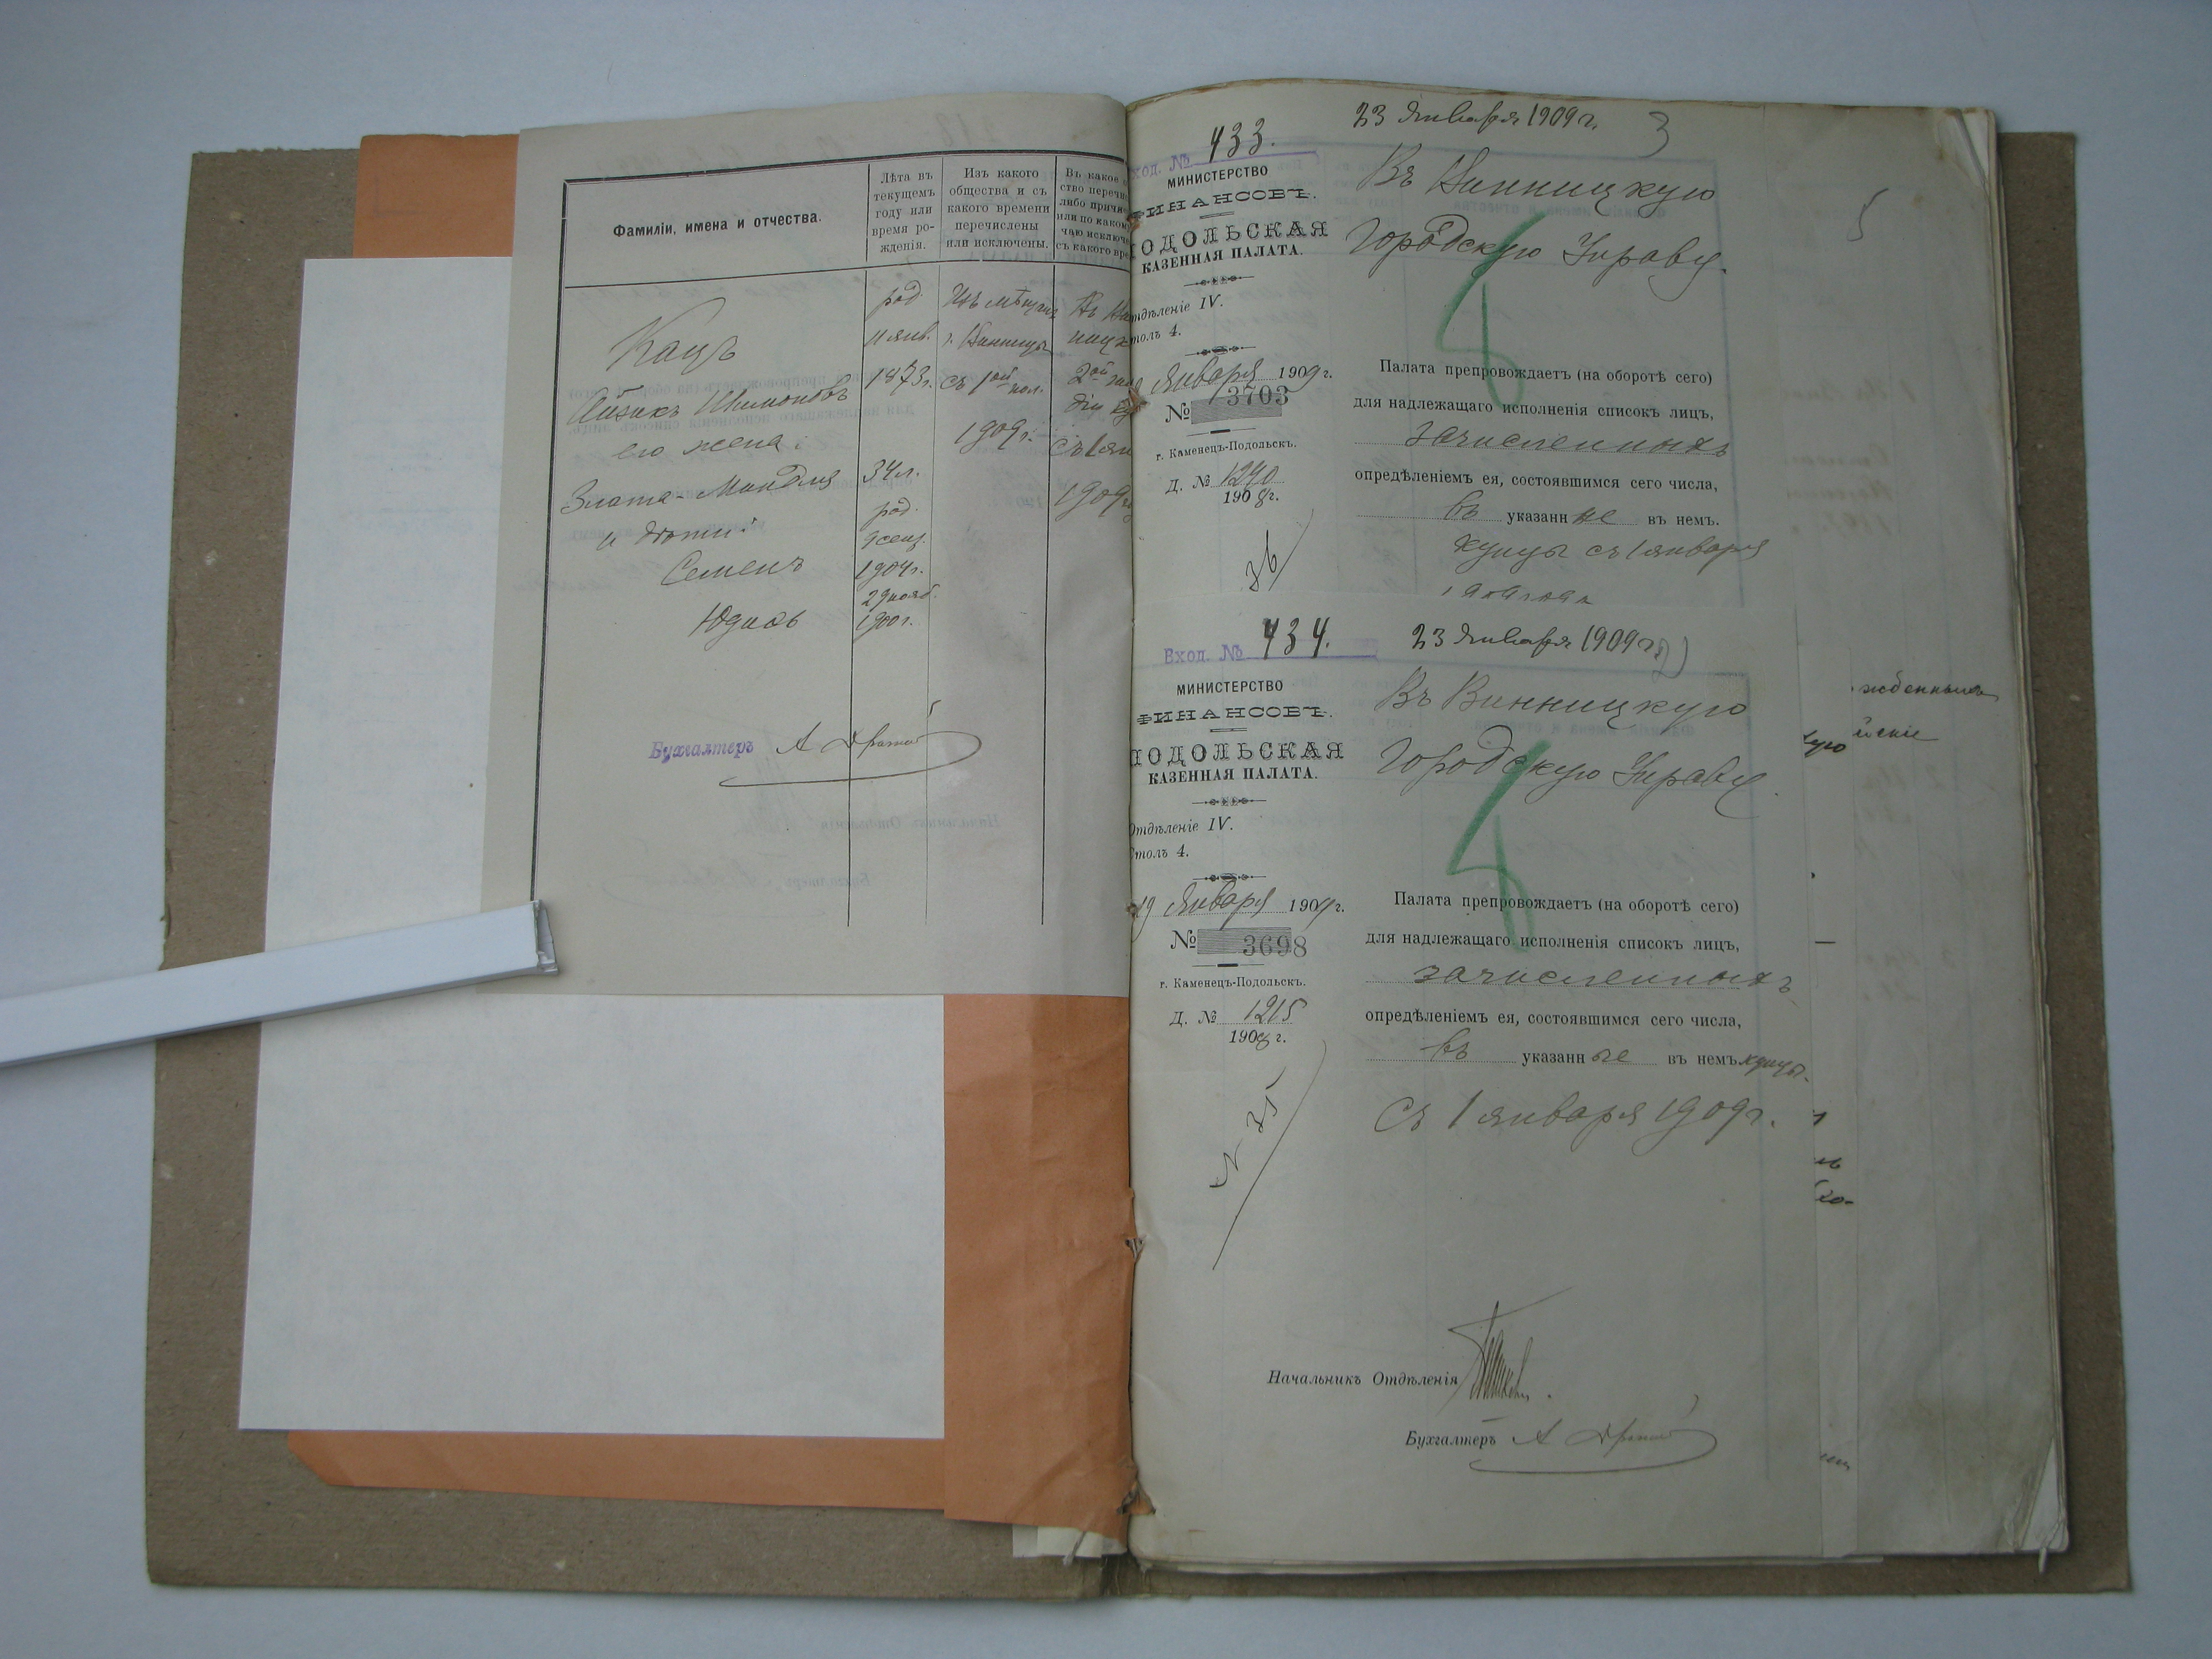 Фамиліи, имена и отчества.
Лѣта въ
текущемъ
году или
время ро-
жденія.
Изъ какого
общества и съ
какого времени
перечислены
или исключены.
Въ какое
ство перечи
либо причи
или по каком
чаю исключ
съ какого вре
Кацъ
Айзикъ Шимоновъ
его жена:
Злата-Миндля
и дѣти:
Семенъ
Юдись
род.
11 янв.
1873 г.
34 л.
род.
9 сент.
1904 г.
29 нояб.
1900 г.
Изъ мѣщанъ
г. Винницы
съ 1ой пол.
1909 г.
Въ Вин
ницк
2ой гил
діи куп
съ 1 янв
1909 г.
Бухгалтеръ
Вход. № 433.
23 Января 1909 г.
3
5
МИНИСТЕРСТВО
ФИНАНСОВЪ.
ПОДОЛЬСКАЯ
КАЗЕННАЯ ПАЛАТА.
Отдѣленіе IV.
Столъ 4.
Января 1909 г.
№ 3703
г. Каменецъ-Подольскъ.
Д. № 1240
1908 г.
Въ Винницкую
Городскую Управу.
Палата препровождаетъ (на оборотѣ сего)
для надлежащаго исполненія списокъ лицъ,
зачисленныхъ
опредѣленіемъ ея, состоявшимся сего числа,
въ указанные въ немъ.
купцы съ 1 января
Вход. № 434.
23 Января 1909 г.
МИНИСТЕРСТВО
ФИНАНСОВЪ.
ПОДОЛЬСКАЯ
КАЗЕННАЯ ПАЛАТА.
Отдѣленіе IV.
Столъ 4.
19 Января 1909 г.
№ 3698
г. Каменецъ-Подольскъ.
Д. № 1215
1908 г.
Въ Винницкую
Городскую Управу.
Палата препровождаетъ (на оборотѣ сего)
для надлежащаго исполненія списокъ лицъ,
зачисленныхъ
опредѣленіемъ ея, состоявшимся сего числа,
въ указанные въ немъ купцы
съ 1 января 1909 г.
Начальникъ Отдѣленія
Бухгалтеръ